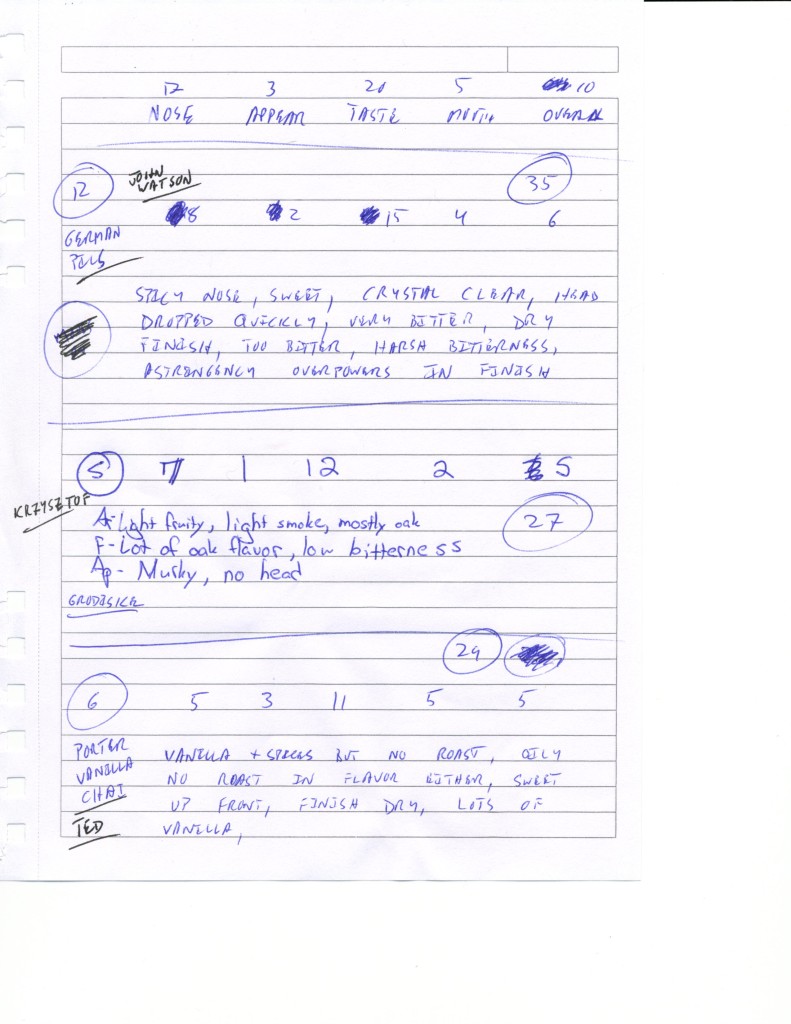 12 3 20 5 10
NOSE APPEAR TASTE MOUTH OVERALL
12 JOHN WATSON 35
8 2 15 4 6
GERMAN
PILS
SPICY NOSE, SWEET, CRYSTAL CLEAR, HEAD
DROPPED QUICKLY, VERY BITTER, DRY
FINISH, TOO BITTER, HARSH BITTERNESS,
ASTRENGENCY OVERPOWERS IN FINISH
5 7 1 12 2 5
KRZYSZTOF
A-Light fruity, light smoke, mostly oak
27
F-Lot of oak flavor, low bitterness
Ap- Murky, no head
GRODZISKIE
29
6 5 3 11 5 5
PORTER VANILLA + SPICES BUT NO ROAST, OILY
VANILLA NO ROAST IN FLAVOR EITHER, SWEET
CHAI UP FRONT, FINISH DRY, LOTS OF
TED VANILLA,